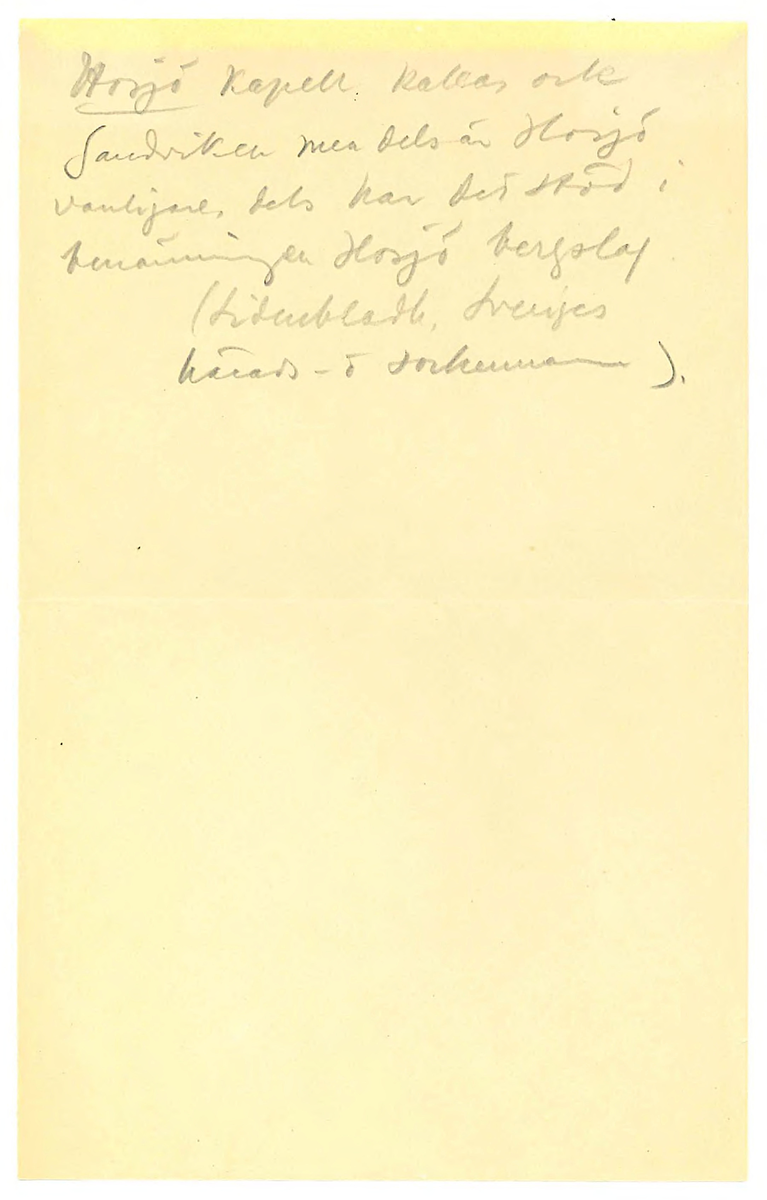 Hosjö kapell. kallas ock
Sandviken men dels är Hosjö
vanligare, dels har det stöd i
benämningen Hosjö bergslag
(Sidenbladh, Sveriges
härads- o sockennamn).